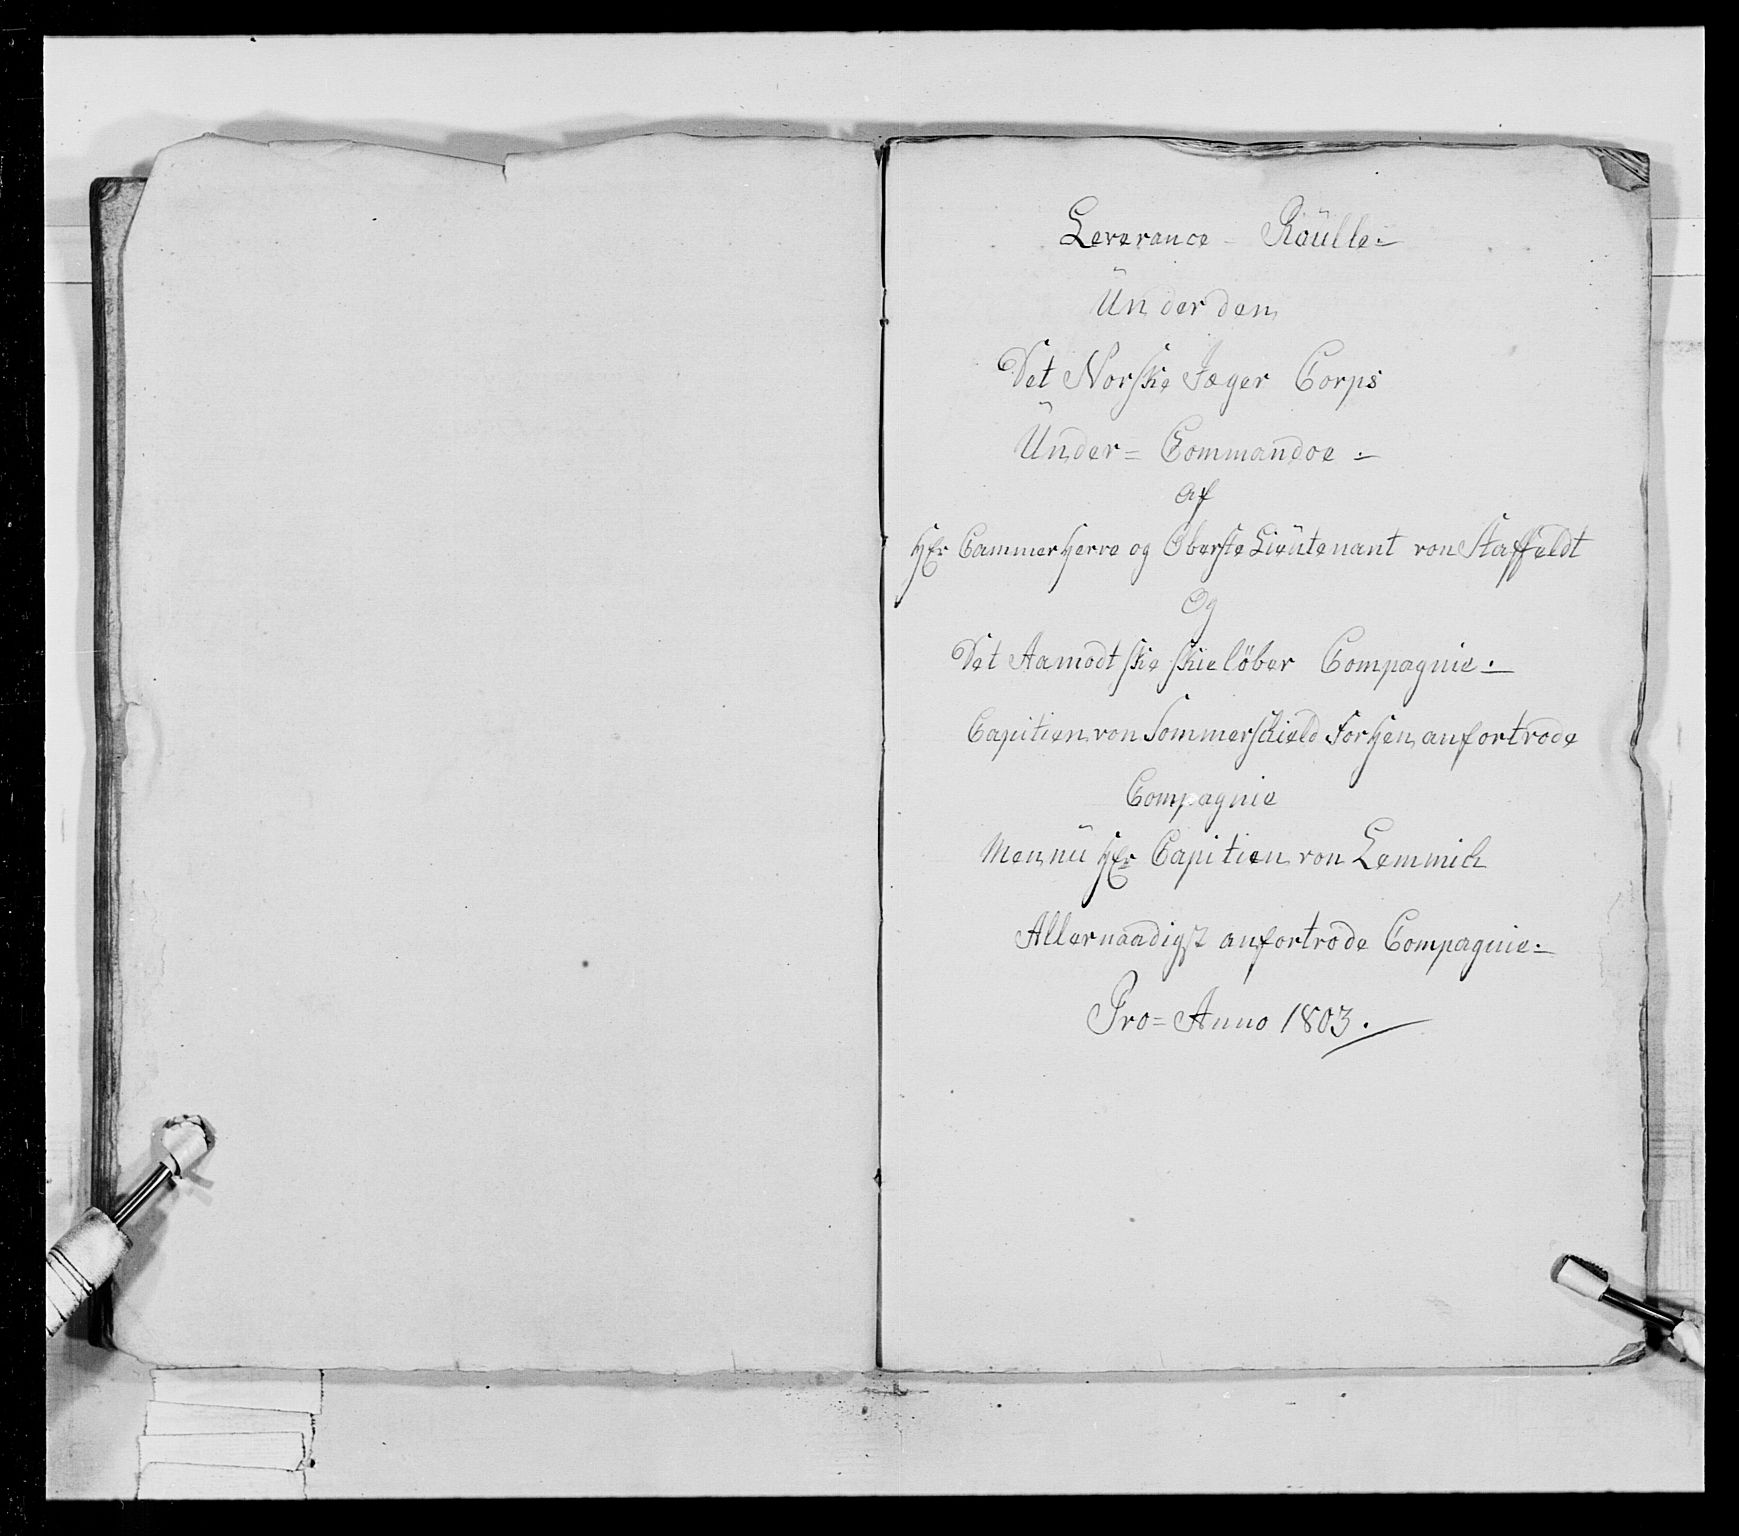 Leverance - Räulle.-
Ünder den
Det Norske Jæger Corps
Ünder = Commandoe .-
af
Hr Cammerherre og Oberste Lieütenant von Staffeldt
Og
Det Aamodtske Skielöber Compagnie.-
Capitien von Sommerschield forhen anfortrode
Compagnie
Men nü Hr Capitien von Lemmich
Allernaadigst anfortrode Compagnie.-
Pro = Anno 1803.